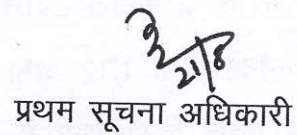 21/8
प्रथम सूचना अधिकारी